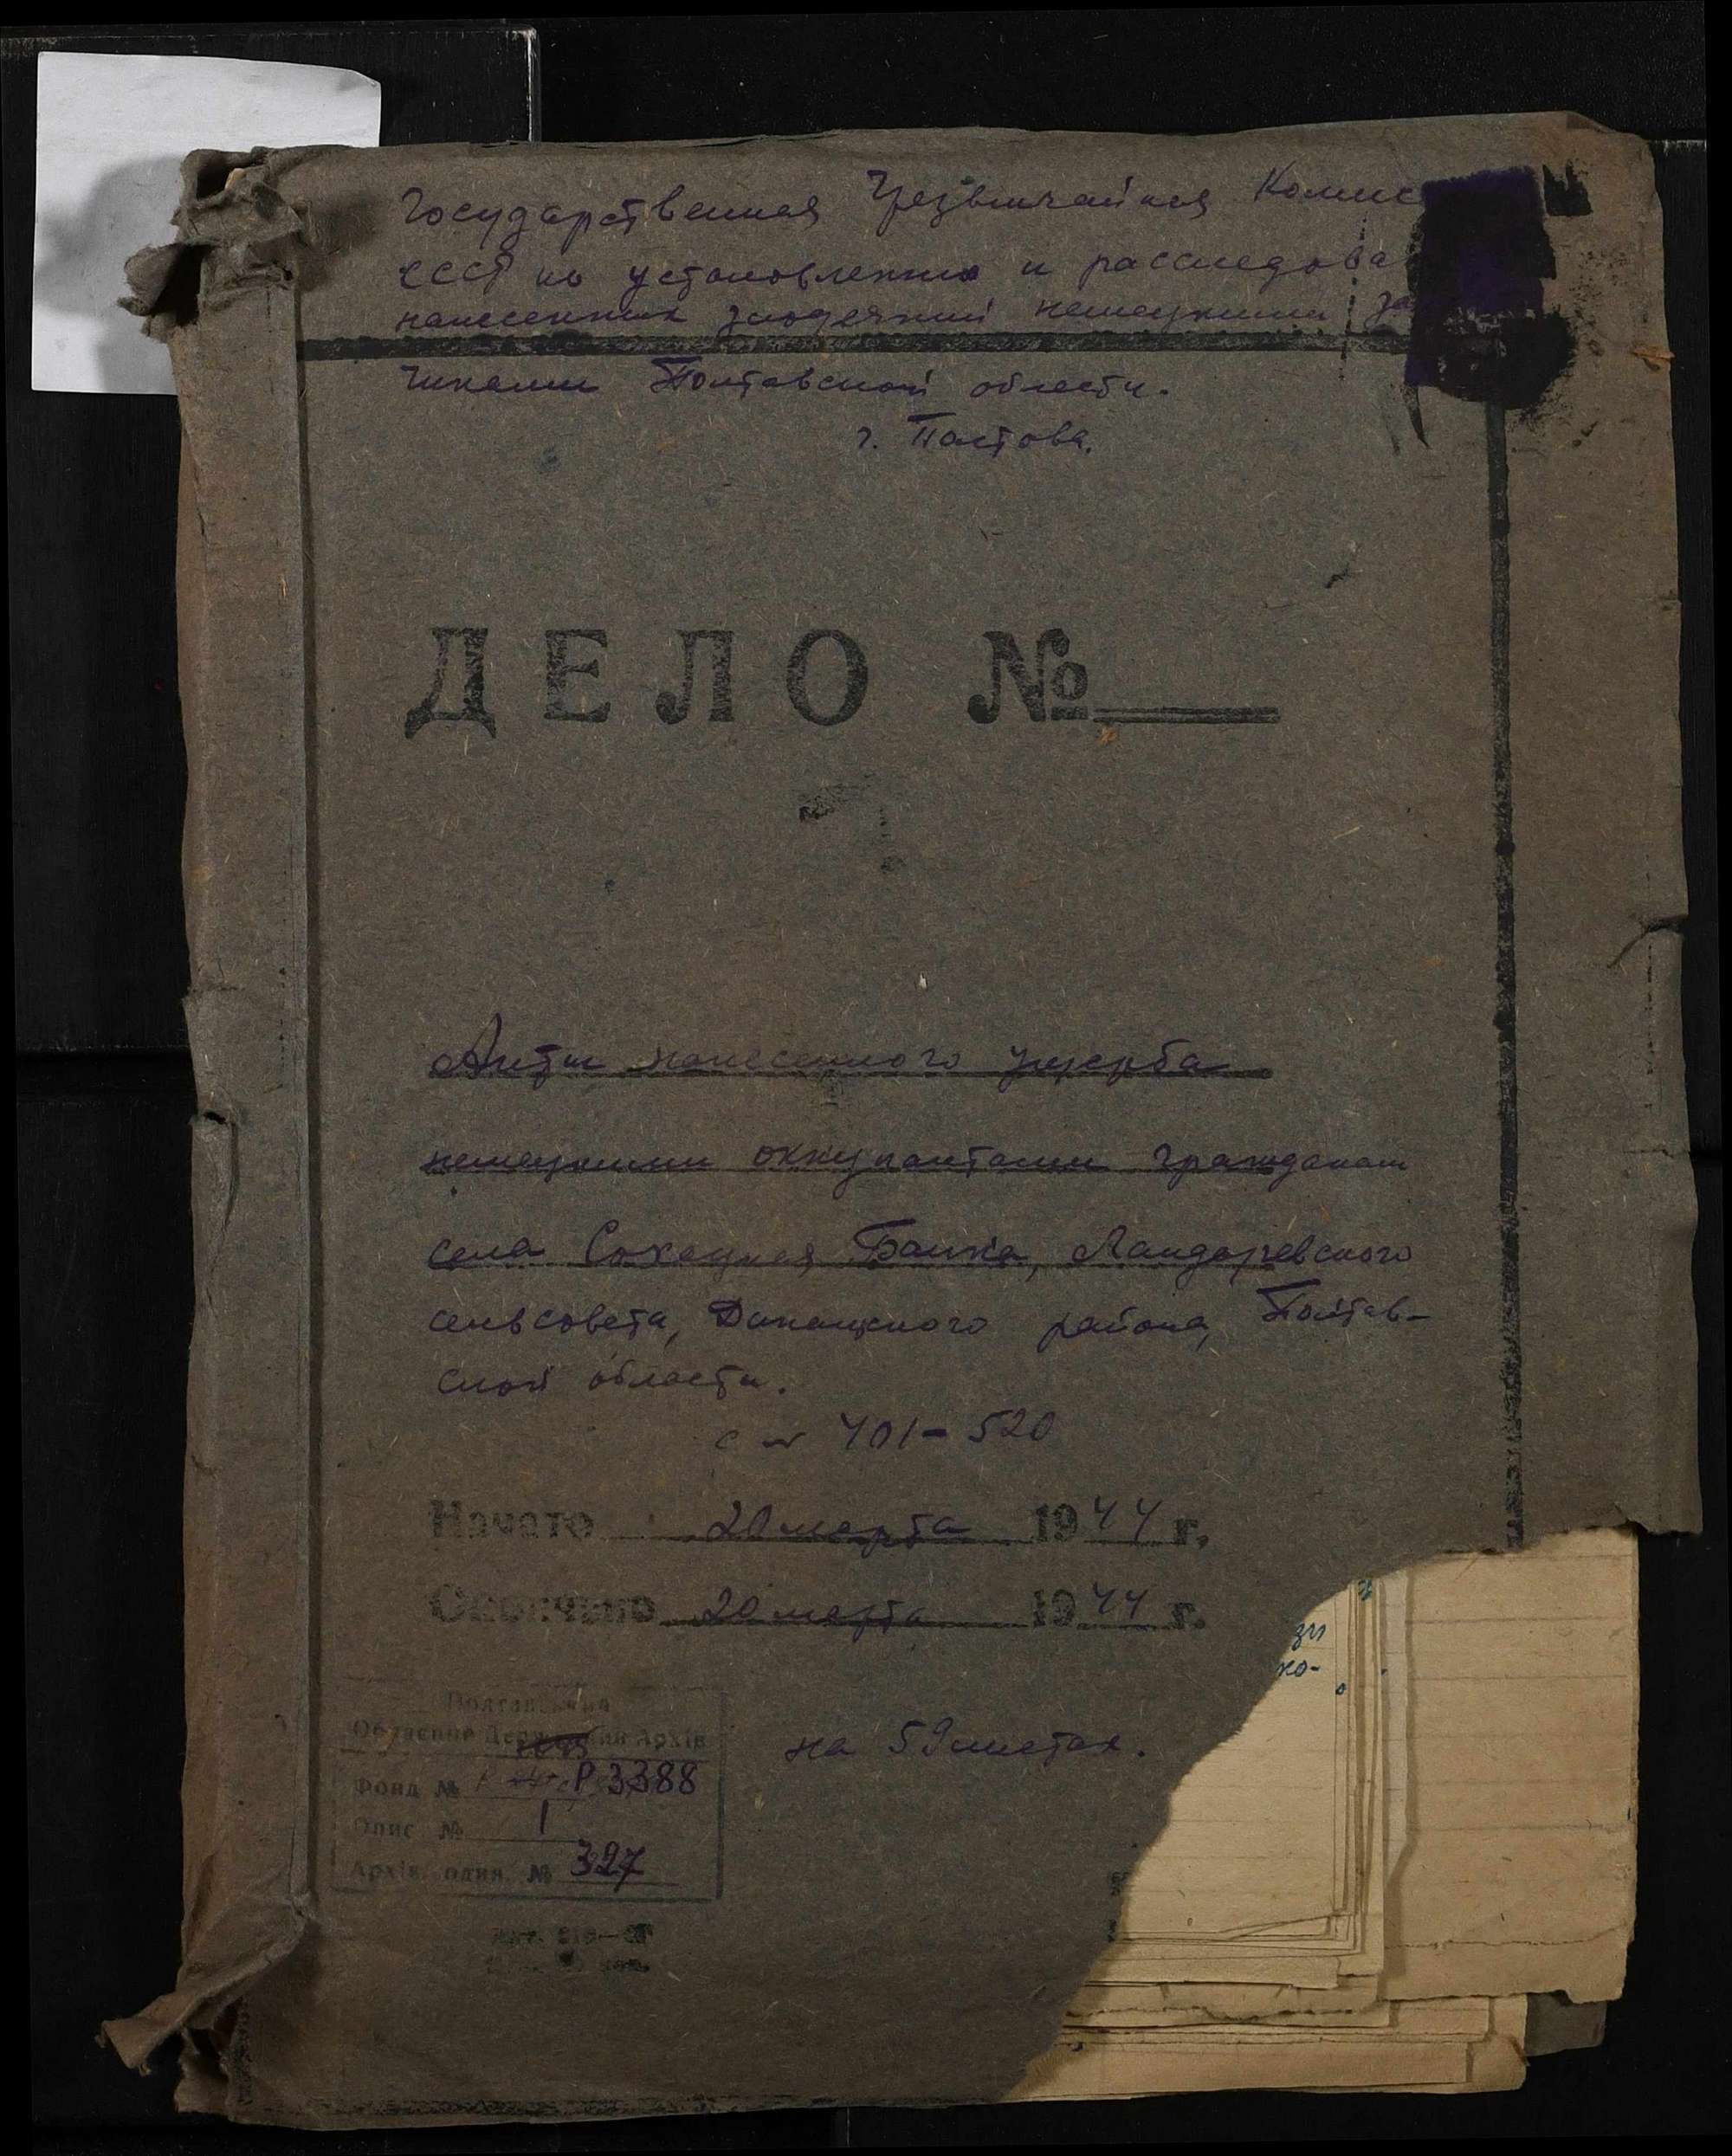 Государственная Чрезвычайная Комис
СССР по установлению и расследова
нанесенных злодеяний немецкими за
чиками Полтавской области.
г. Полтава.
ДЕЛО №
Акты нанесенного ущерба
немецкими оккупантами гражданам
села Балка, Ландаревского
сельсовета, Диканского района, Полтав-
ской области.
с № 401-520
Начато 20 марта 1944 г.
Окончено 20 марта 1944 г.
Полтавський
Обласний Державний Архів
Фонд № Р 3388
Опис № 1
Архів. один. № 327
на 59 листах.
зи
ко-